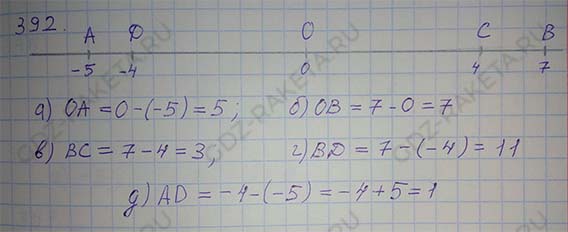 392.
A D O C B
-5 -4 0 4 7
а) OA = 0-(-5) = 5; б) OB = 7-0 = 7
в) BC = 7-4 = 3, г) BD = 7-(-4) = 11
д) AD = -4-(-5) = -4+5 = 1
GDZ-RAKETA.RU